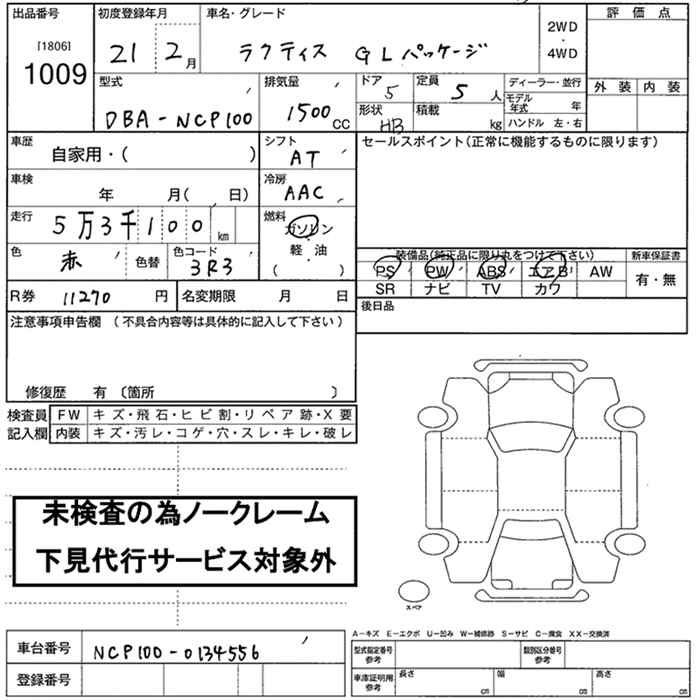 出品番号 初度登録年月 車名・グレード 2WD ・ 4WD 評価点
[1806]
1009 21 2月 ラクティス GLパッケージ
型式 排気量 ドア 5 定員 5人 ディーラー・並行 外装 内装
DBA-NCP100 1500CC 形状 HB 積載 kg モデル年式 年
ハンドル 左・右
車歴 シフト セールスポイント(正常に機能するものに限ります)
自家用・( ) AT
車検 冷房
年 月( 日) AAC
走行 燃料
5万3千100km ガソリン
軽・油
( )
色 赤 色替 色コード 3R3
装備品(純正品に限り丸をつけて下さい) 新車保証書
PS PW ABS エアB AW 有・無
SR ナビ TV カワ
R券 11270円 名変期限 月 日 後日品
注意事項申告欄(不具合内容等は具体的に記入して下さい)
修復歴 有〔箇所 〕
検査員 FW キズ・飛石・ヒビ割・リペア跡・X要
記入欄 内装 キズ・汚レ・コゲ・穴・スレ・キレ・破レ
未検査の為ノークレーム
下見代行サービス対象外
スペア
A-キズ E-エクボ U-凹み W-補修跡 S-サビ C-腐食 XX-交換済
車台番号 NCP100-0134556 型式指定番号 参考 類別区分番号 参考
登録番号 車庫証明用 参考 長さ cm 幅 cm 高さ cm